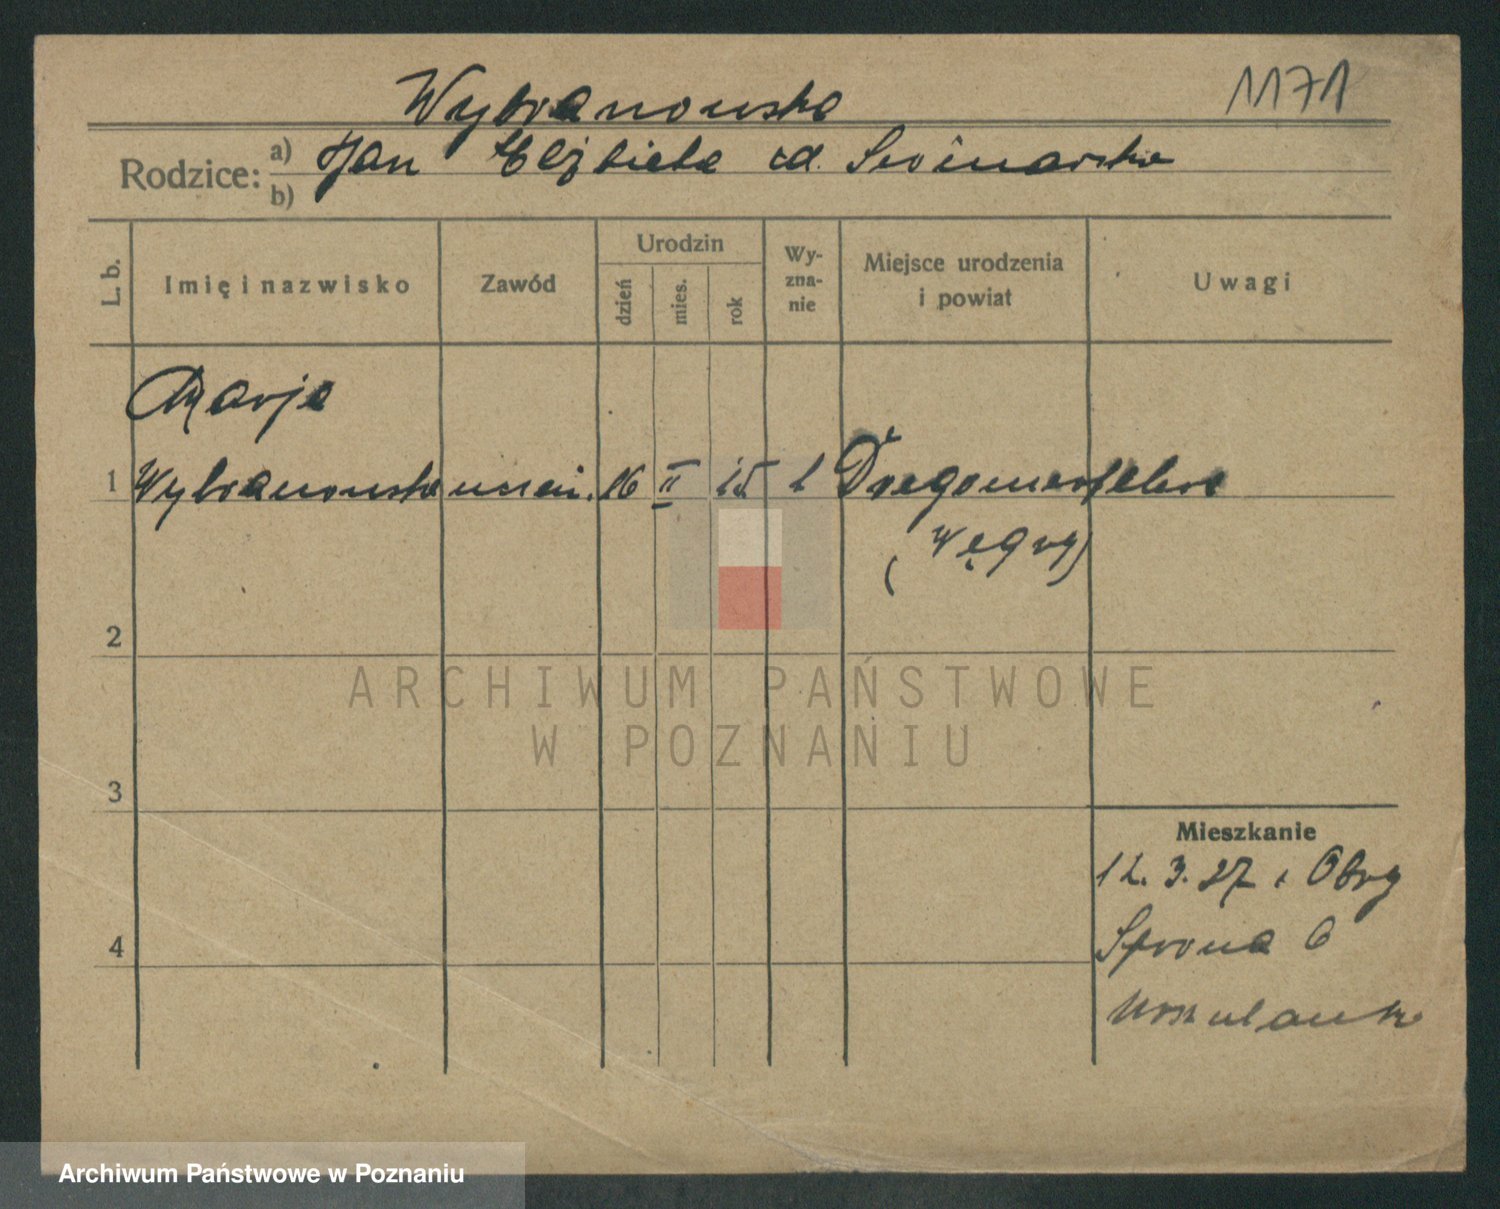 Wybranowska 1171
Rodzice: a) Jan Elżbieta zd.
b)
L. b.
Imię i nazwisko
Zawód
Urodzin
dzień
mies.
rok
Wy-
zna-
nie
Miejsce urodzenia
i powiat
Uwagi
Marja
1 Wybranowska uczen. 16 II 15
(Węgry)
2
ARCHIWUM PAŃSTWOWE
W POZNANIU
3
Mieszkanie
12.3.27 z Obry
4
Sporna 6
Urszulanki
Archiwum Państwowe w Poznaniu